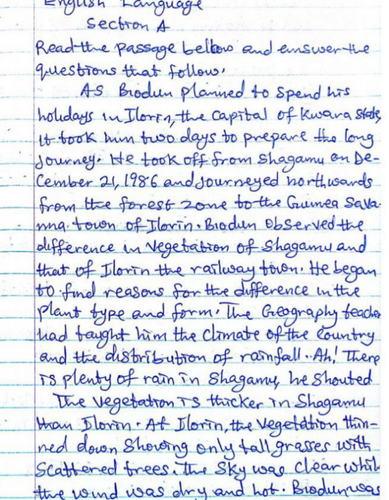 English Language
Section A
Read the passage bellow and answer the
questions that follow.
As Biodun planned to spend his
holidays in Ilorin, the capital of Kwara state,
it took him two days to prepare the long
journey. He took off from Shagamu on De-
cember 21, 1986 and journeyed northwards
from the forest zone to the Guinea Sava-
nna town of Ilorin. Biodun observed the
difference in vegetation of Shagamu and
that of Ilorin the railway town. He began
to find reasons for the difference in the
plant type and form. The Geography teacher
had taught him the climate of the country
and the distribution of rainfall. Ah! There
is plenty of rain in Shagamu, he shouted
The vegetation is thicker in Shagamu
than Ilorin. At Ilorin, the vegetation thin-
ned down showing only tall grasses with
scattered trees. The sky was clear whil
the wind was dry and hot. Biodun was